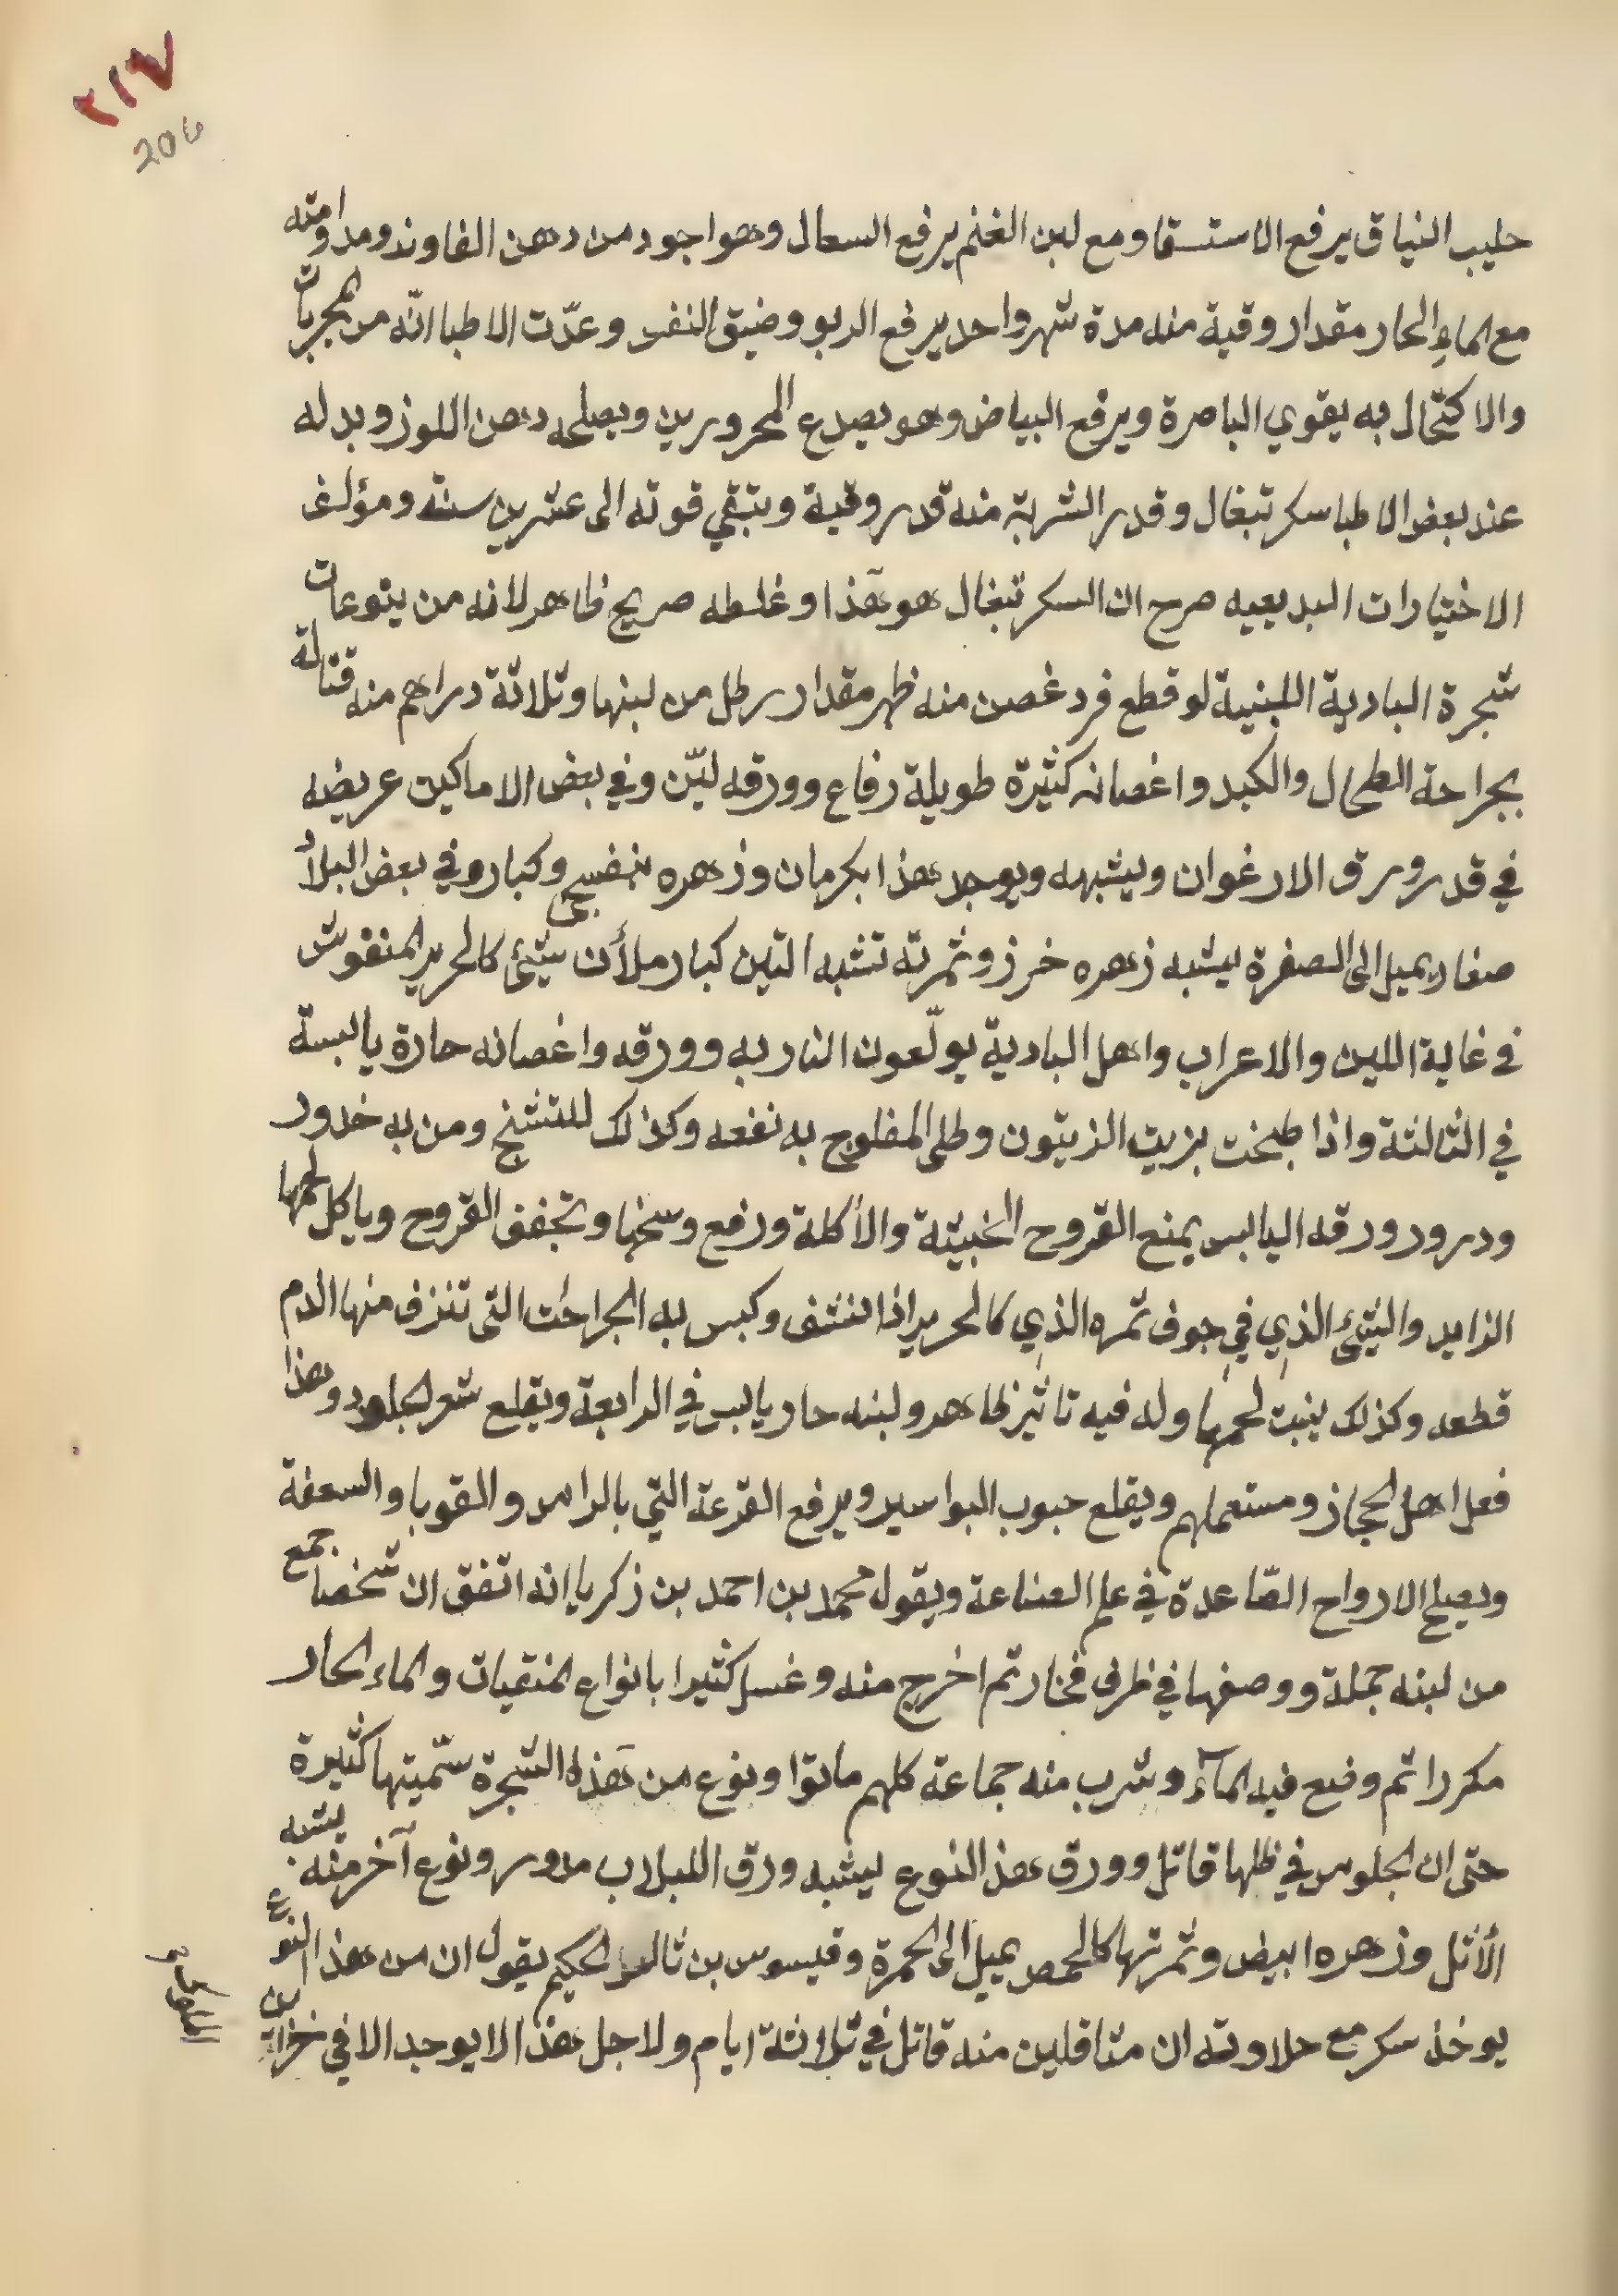 ٢١٧
206
حليب النياق يرفع الاستسقا ومع لبن الغنم يرفع السعال وهو اجود من دهن الفاوند ومداومته
مع الماءِ الحار مقدار وقية منه مدة شهر واحد يرفع الربو وضيق النفس وعدّت الاطبا انّه من المجربات
والاكتحال به يقوي الباصرة ويرفع البياض وهو يصدع المحرورين ويصلحه دهن اللوز وبدله
عند بعض الاطبا سكر تيغال وقدر الشربة منه قدر وقية وتبقي قوته الى عشرين سنة ومؤلف
الاختيارات البديعيه صرح ان السكر تيغال هو هَذا وغلطه صريح ظاهر لانه من يتوعات
شجرة البادية اللبنية لو قطع فرد غصن منه ظهر مقدار رطل من لبنها وثلاثة دراهم منه قتالة
بجراحة الطحال والكبد واغصانه كثيرة طويلة رفاع وورقه ليّن وفي بعض الاماكين عريضه
في قدر ورق الارغوان ويشبهه ويوجد هذا بكرمان وزهره بنفسجي وكبار وفي بعض البلاد
صغار يميل الى الصفرة يشبه زهره خرز وثمرته تشبه التين كبار ملأن شيئ كالحرير المنفوش
في غاية اللين والاعراب واهل البادية يولّعون النار به وورقه واغصانه حارة يابسة
في الثالثة واذا طبخت بزيت الزيتون وطلى المفلوج به نفعه وكذلك للتشنج ومن به خدور
ودرور ورقه اليابس يمنع القروح الخبيثة والأكلة ورفع وسخها وتجفف القروح وياكل لحمها
الزايد والشيئ الذي في جوف ثمره الذي كالحرير اذا انتتف وكبس به الجراحات التى تنزف منها الدم
قطعه وكذلك ينبت لحمها وله فيه تاثير ظاهر ولبنه حار يابس في الرابعة ويقلع شعر الجلود وهذا
فعل اهل الحجاز ومستعملهم ويقلع حبوب البواسير ويرفع القرعة التي بالراس والقوبا والسعفة
ويصلح الارواح الصّاعدة في علم الصناعة ويقول محمد بن احمد بن زكريا إنه اتفق ان شخصا جمع
من لبنه جملة ووضعها في ظرف فخار ثم اخرج منه وغسل كثيرا بانواع المنقيات والماء الحار
مكررا ثم وضع فيه المآء وشرب منه جماعة كلهم ماتوا ونوع من هَذه الشجرة سّميتها كثيرة
حتى ان الجلوس في ظلها قاتل وورق هذ النوع يشبه ورق اللبلاب مدور ونوع آخر منه يشبه
الأثل وزهره ابيض وثمرتها كالحمص يميل الى الحمرة وقيسوس بن ثالس الحكيم يقول ان من هذا النوع
يوخذ سكر مع حلاوته ان مثاقلين منه قاتل في ثلاثة ايام ولاجل هذا الا يوجد الا في خزاين